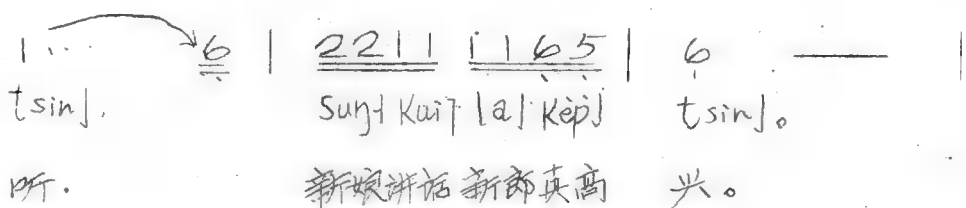 1 ··· 6 | 2211 1165 | 6 — |
tsin˩. suŋ˧ kui˥ la˩ kep˩ tsin˩。
听. 新娘讲话新郎真高 兴。